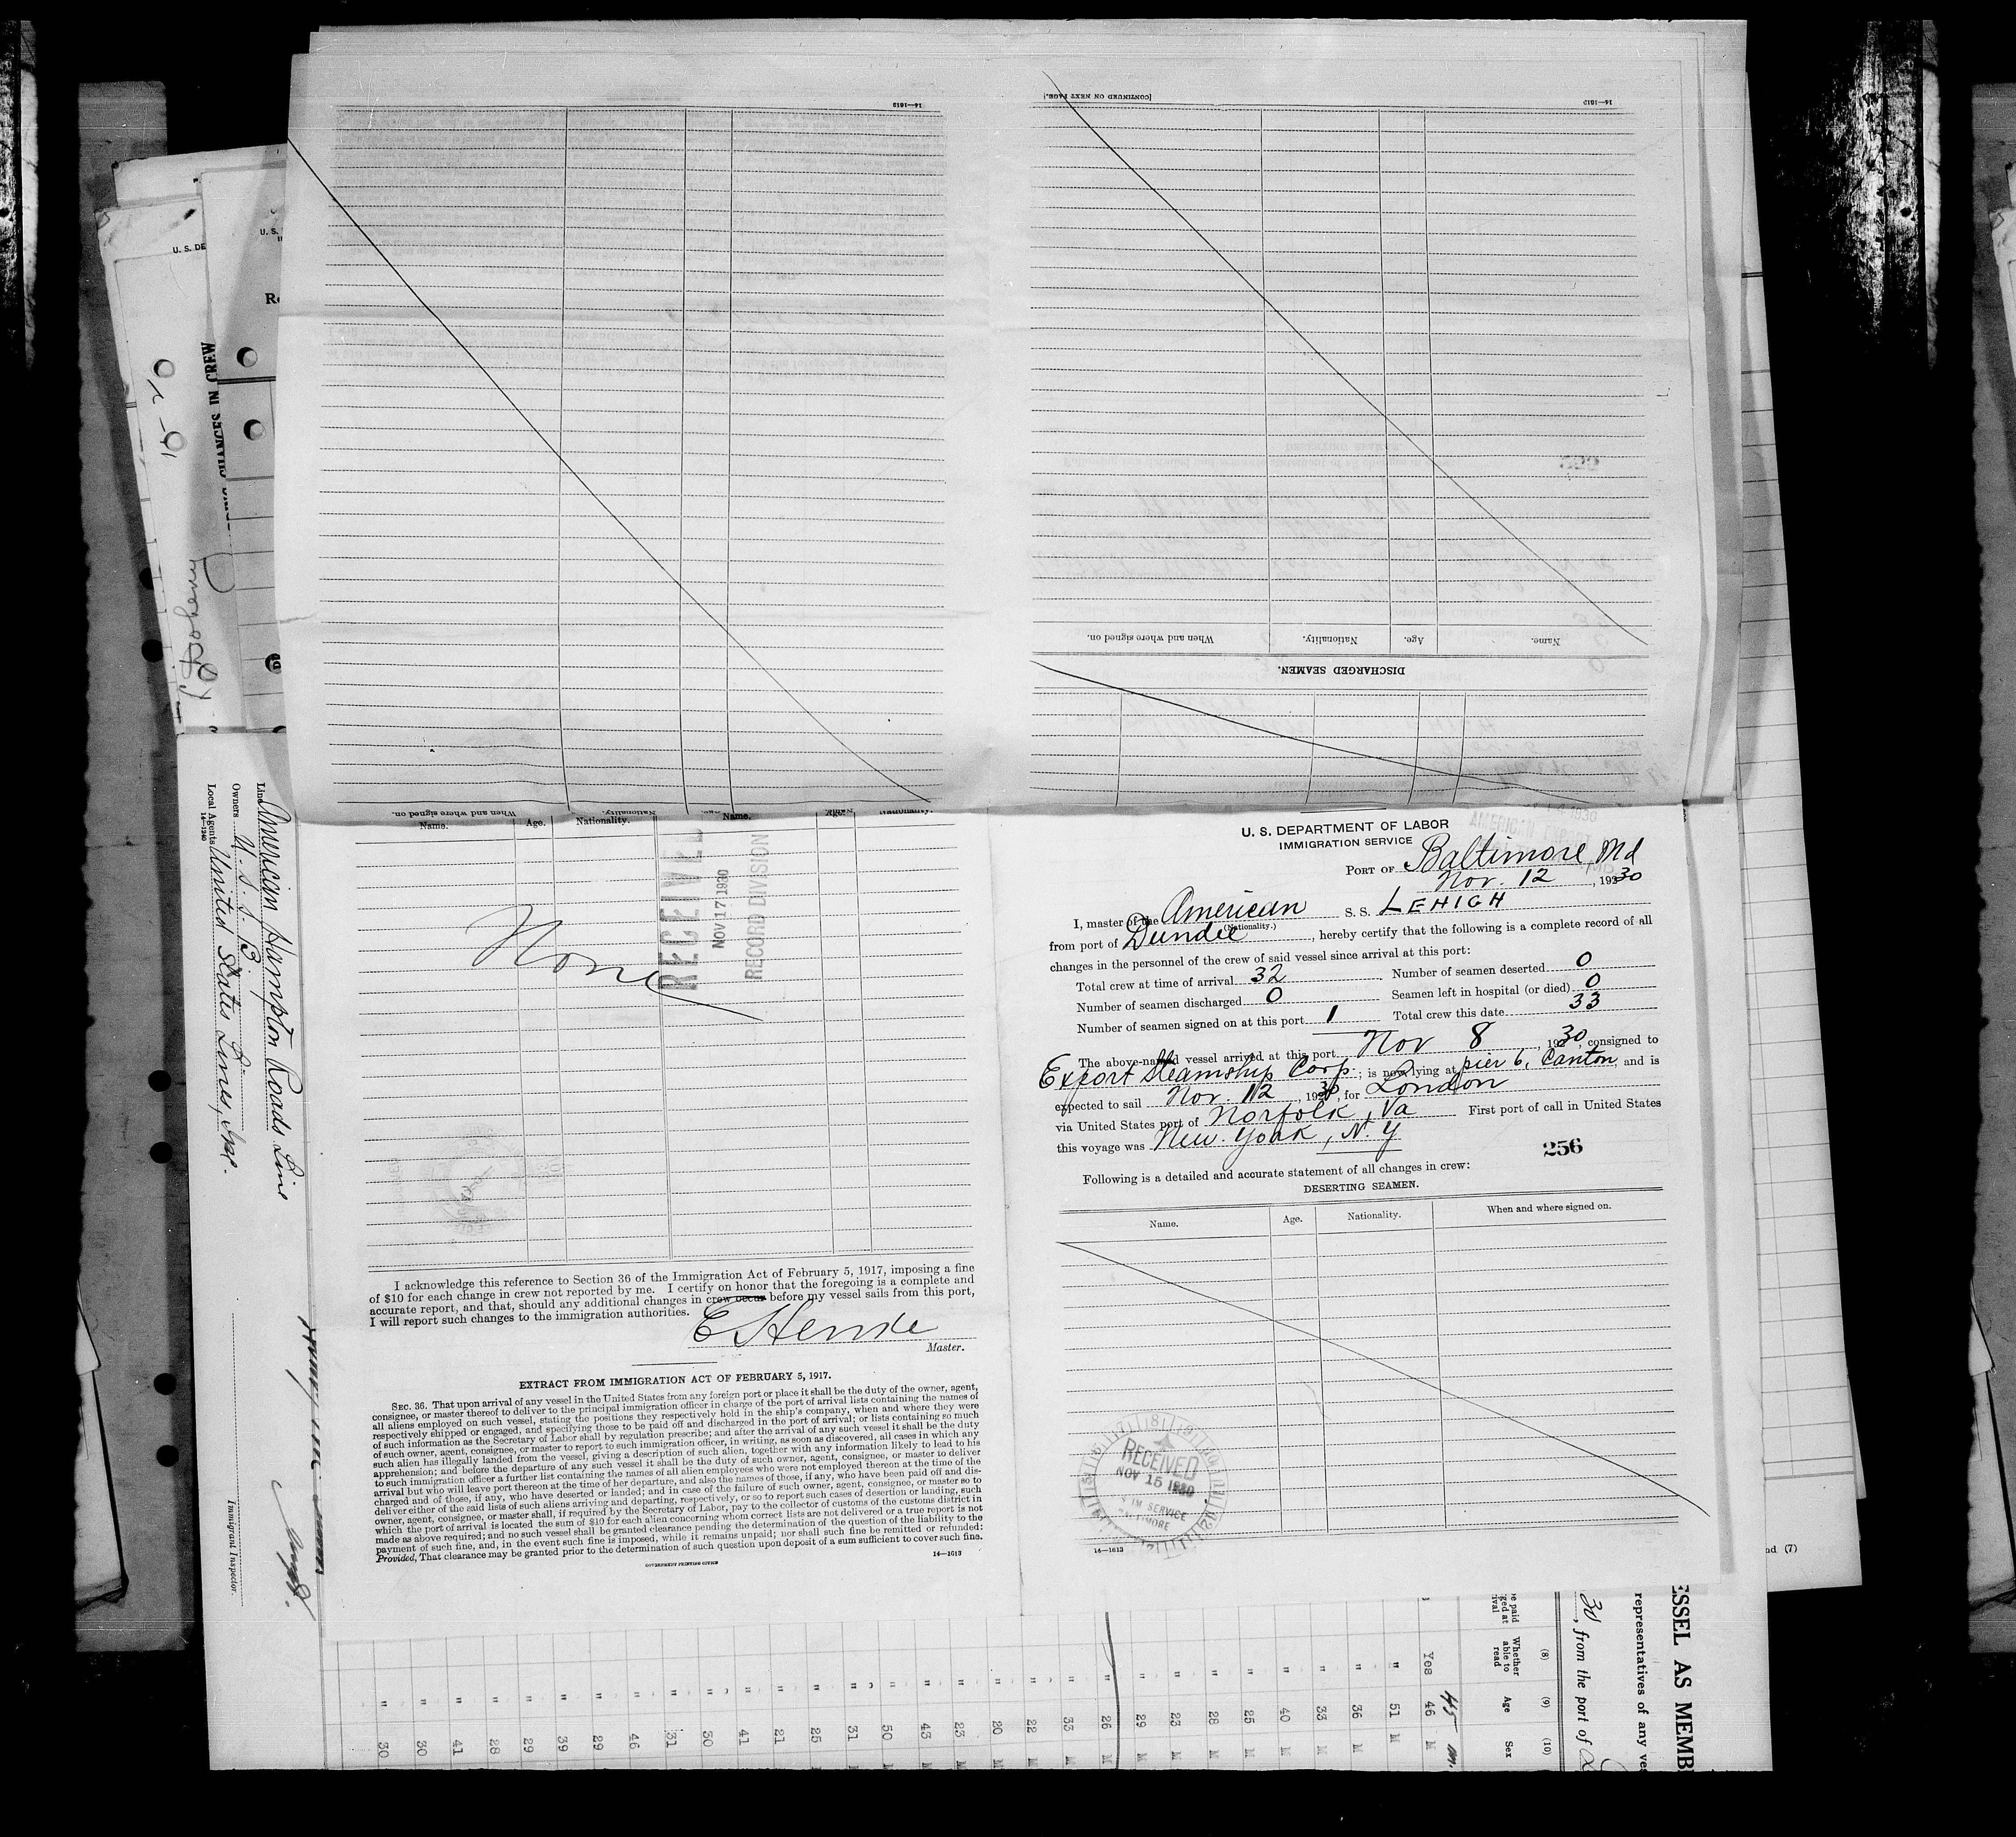 U. S. DEPARTMENT OF LABOR
IMMIGRATION SERVICE
PORT OF Baltimore, Md
Nov. 12, 1930
I, master of the American S. S. LEHIGH
(Nationality.)
from port of Dundee, hereby certify that the following is a complete record of all
changes in the personnel of the crew of said vessel since arrival at this port:
Total crew at time of arrival 32 Number of seamen deserted 0
Number of seamen discharged 0 Seamen left in hospital (or died) 0
Number of seamen signed on at this port 1 Total crew this date 33
The above-named vessel arrived at this port Nov 8, 1930, consigned to
Export Steamship Corp.; is now lying at pier 6, Canton, and is
expected to sail Nov. 12, 1930, for London
via United States port of Norfolk, Va First port of call in United States
this voyage was New York, N. Y
256
Following is a detailed and accurate statement of all changes in crew:
DESERTING SEAMEN.
Name. Age. Nationality. When and where signed on.
RECEIVED
NOV 15 1930
IM SERVICE
BALTIMORE
14—1613
[CONTINUED ON NEXT PAGE.]
14—1613
DISCHARGED SEAMEN.
Name. Age. Nationality. When and where signed on.
14—1613
Name. Age. Nationality. Name. Age. Nationality.
When and where signed on.
None
RECEIVED
NOV 17 1930
RECORD DIVISION
I acknowledge this reference to Section 36 of the Immigration Act of February 5, 1917, imposing a fine
of $10 for each change in crew not reported by me. I certify on honor that the foregoing is a complete and
accurate report, and that, should any additional changes in crew occur before my vessel sails from this port,
I will report such changes to the immigration authorities.
Master.
EXTRACT FROM IMMIGRATION ACT OF FEBRUARY 5, 1917.
SEC. 36. That upon arrival of any vessel in the United States from any foreign port or place it shall be the duty of the owner, agent,
consignee, or master thereof to deliver to the principal immigration officer in charge of the port of arrival lists containing the names of
all aliens employed on such vessel, stating the positions they respectively hold in the ship's company, when and where they were
respectively shipped or engaged, and specifying those to be paid off and discharged in the port of arrival; or lists containing so much
of such information as the Secretary of Labor shall by regulation prescribe; and after the arrival of any such vessel it shall be the duty
of such owner, agent, consignee, or master to report to such immigration officer, in writing, as soon as discovered, all cases in which any
such alien has illegally landed from the vessel, giving a description of such alien, together with any information likely to lead to his
apprehension; and before the departure of any such vessel it shall be the duty of such owner, agent, consignee, or master to deliver
to such immigration officer a further list containing the names of all alien employees who were not employed thereon at the time of the
arrival but who will leave port thereon at the time of her departure, and also the names of those, if any, who have been paid off and dis-
charged and of those, if any, who have deserted or landed; and in case of the failure of such owner, agent, consignee, or master so to
deliver either of the said lists of such aliens arriving and departing, respectively, or so to report such cases of desertion or landing, such
owner, agent, consignee, or master shall, if required by the Secretary of Labor, pay to the collector of customs of the customs district in
which the port of arrival is located the sum of $10 for each alien concerning whom correct lists are not delivered or a true report is not
made as above required; and no such vessel shall be granted clearance pending the determination of the question of the liability to the
payment of such fine, and, in the event such fine is imposed, while it remains unpaid; nor shall such fine be remitted or refunded:
Provided, That clearance may be granted prior to the determination of such question upon deposit of a sum sufficient to cover such fine.
GOVERNMENT PRINTING OFFICE
14—1613
Line American Hampton Roads Line
Owners U. S. S. B
Local Agents United States Lines, Inc.
14—1240
Immigrant Inspector.
U. S. DE
U. S.
CHANGES IN CREW
ESSEL AS MEMB
representatives of any ves
30, from the port of
(8) (9) (10)
Whether able to read Age Sex
45 m.
Yes 46 M
" 51 M
" 36 M
" 33 M
" 40 M
" 25 M
" 28 M
" 23 M
" 29 M
" 26 M
" 33 M
" 22 M
" 20 M
" 23 M
" 43 M
" 50 M
" 31 M
" 25 M
" 21
" 41
" 30
" 31
" 46
" 29
" 39
" 29
" 28
" 41
" 30
" 30
nd (7)